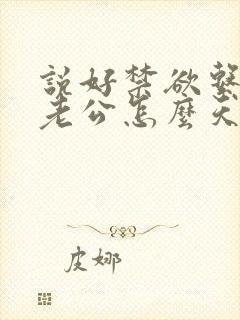 說好禁欲繫
老公怎麼天
皮娜